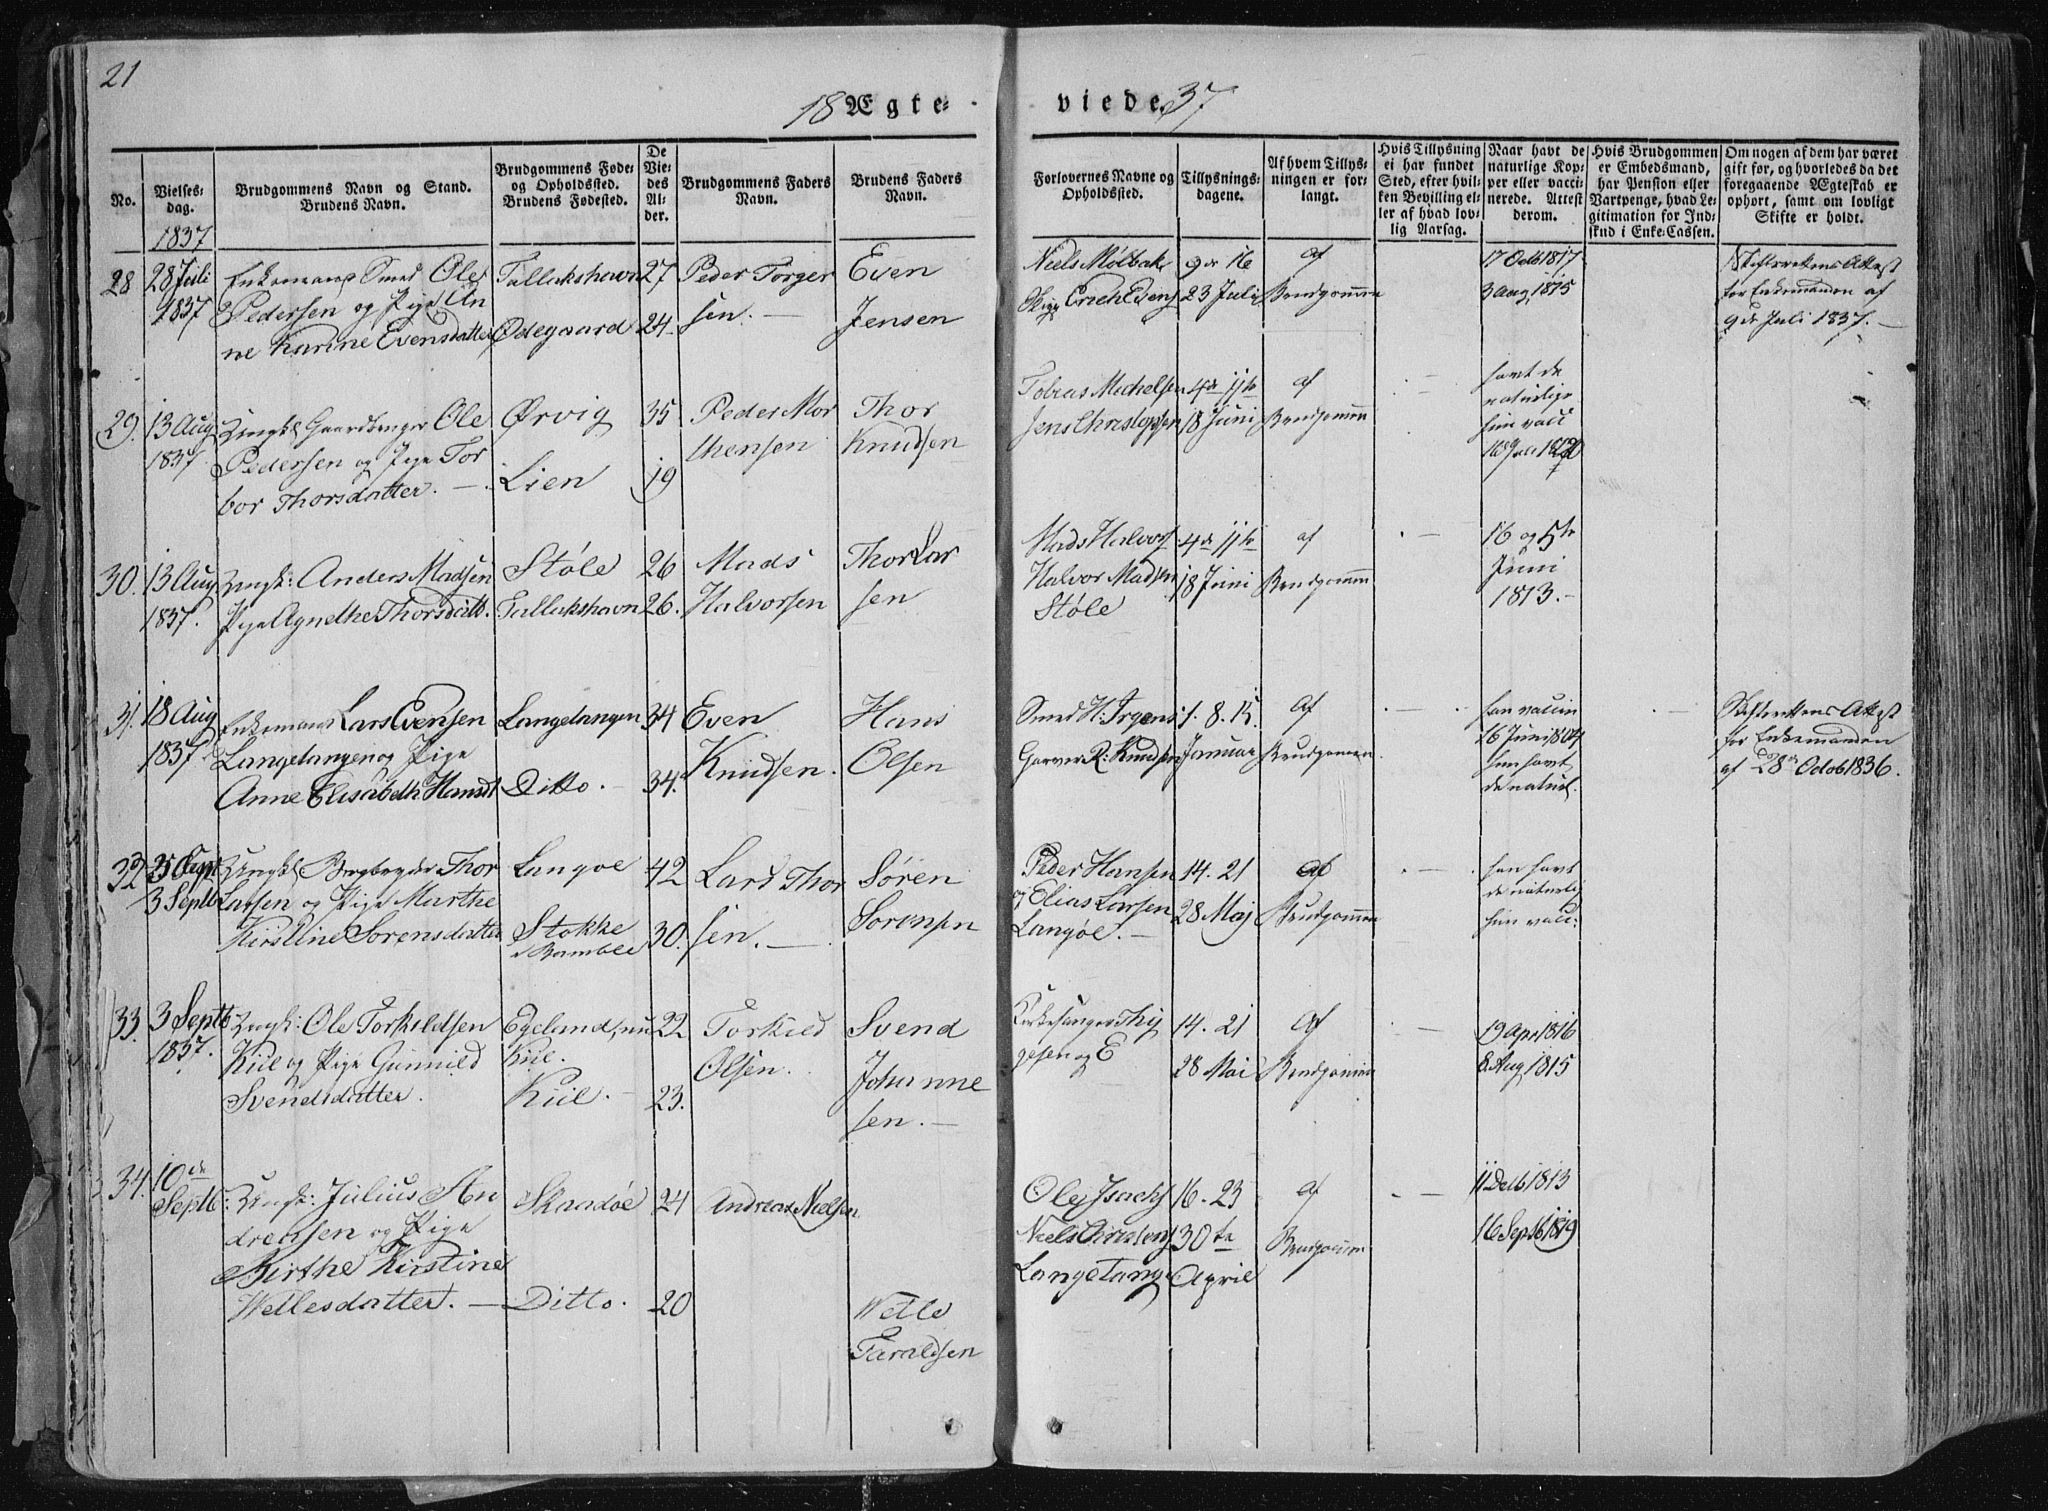 21
18 Ægte=
viede. 37
No.
Vielses-
dag.
1837
Brudgommens Navn og Stand.
Brudens Navn.
Brudgommens Føde-
og Opholdssted.
Brudens Fødested.
De
Vie-
des
Al-
der.
Brudgommens Faders
Navn.
Brudens Faders
Navn.
Forlovernes Navne og
Opholdssted.
Tillysnings-
dagene.
Af hvem Tillys-
ningen er for-
langt.
Hvis Tillysning
ei har fundet
Sted, efter hvil-
ken Bevilling el-
ler af hvad lov-
lig Aarsag.
Naar havt de
naturlige Kop-
per eller vacci-
nerede. Attest
derom.
Hvis Brudgommen
er Embedsmand,
har Pension eller
Vartpenge, hvad Le-
gitimation for Ind-
skud i Enke-Cassen.
Om nogen af dem har været
gift før, og hvorledes da det
foregaaende Ægteskab er
ophørt, samt om lovligt
Skifte er holdt.
28
28 Juli
1837
Enkemand Smed Ole
Pedersen og Pige An
ne Karine Evensdatter
Tallakshavn
Ødegaard
27
24.
Peder Torger
sen. —
Even
Jensen
Niels Mølbak
Erich Evens
9de 16
23 Juli
af
Brudgommen
17 Octb 1817
3 Aug 1815
Skifterettens Attest
for Enkemanden af
9de Juli 1837. —
29.
13 Aug
1837
Ungk. Gaardbruger Ole
Pedersen og Pige Tor
bor Thorsdatter. —
Ørvig
Lien
35
19
Peder Mor
thensen
Thor
Knudsen
Tobias Michelsen
Jens Christophersen
4de 11te
18 Juni
af
Brudgommen
havt de
naturlige
hun vacc
30.
13 Aug
1837.
Ungk: Anders Madsen
Pige Agnethe Thorsdatt.
Støle
Tallakshavn
26
26.
Mads
Halvorsen
Thor Lar
sen
Mads Halvors
Halvor Madsen
Støle
4de 11te
18 Juni
af
Brudgommen
16 og 5te
Juni
1813. —
31.
18 Aug
1837
Enkemand Lars Evensen
Langetangen og Pige
Anne Elisabeth Hansdt
Langetangen
Ditto. —
34
34.
Even
Knudsen.
Hans
Olsen
Smed H. Irgens
Garver R. Knudsen
1. 8. 15.
Januar
Af
Brudgommen
han vaccin
16 Juni 1804
hun havt
de naturl.
Skifterettens Attest
for Enkemanden
af 28de Octob 1836.
32
3 Septb
Ungk. Thor
Larsen og Pige Marthe
Kirstine Sørensdatter
Langøe
Stokke
i Bamble
42
30.
Lars Thor
sen. —
Søren
Sørensen
Peder Hansen
og Elias Larsen
Langøe. —
14. 21
28 Maj
af
Brudgommen
han havt
de naturlig
hun vacc.
33.
3 Septb
1837.
Ungk: Ole Torkildsen
Kiil og Pige Gunnild
Svendsdatter.
Egeland, nu
Kiil.
Kiil. —
22
23.
Torkild
Olsen.
Svend
Johanne
sen. —
Kirkesanger Thy
gesen og E
14. 21
28 Mai
Af
Brudgommen
19 Apr 1816
8. Aug 1815
34.
10de
Septb:
Ungk: Julius An
dreasen og Pige
Birthe Kirstine
Wetlesdatter. —
Skaadøe
Ditto.
24
20
Andreas Nielsen
Wetle
Taraldsen
Ole Isachs
Niels Christens
Langetang
16. 23
30te
April
af
Brudgommen
11 Decb 1813
16 Septb 1819